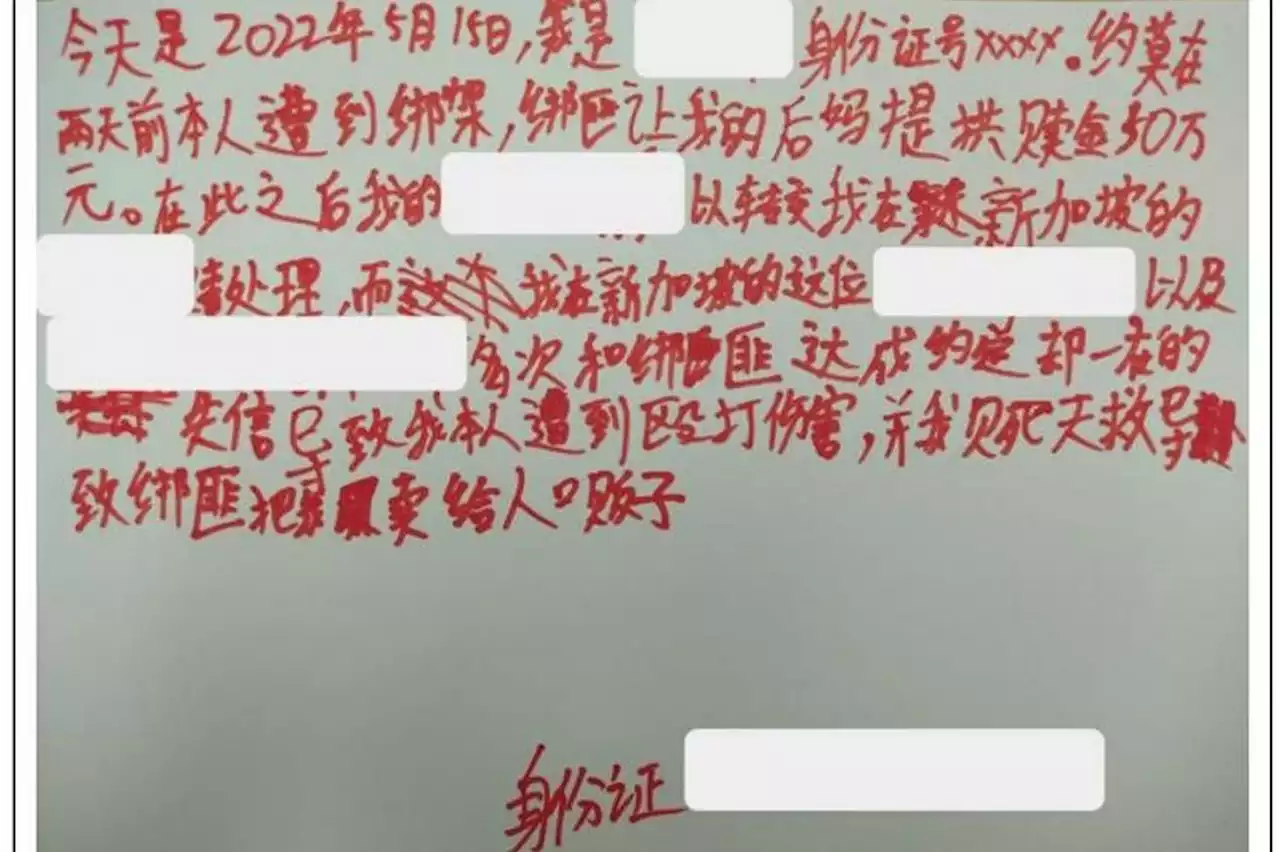 今天是2022年5月15日,我是 身份证号xxxx。约莫在
两天前本人遭到绑架,绑匪让我的后妈提供赎金50万
元。在此之后我的 以转交我在 新加坡的
处理,而 我在新加坡的这位 以及
多次和绑匪达成约定却一在的
失信已致我本人遭到殴打伤害,并我见死无救导
致绑匪把我卖给人口贩子
身份证